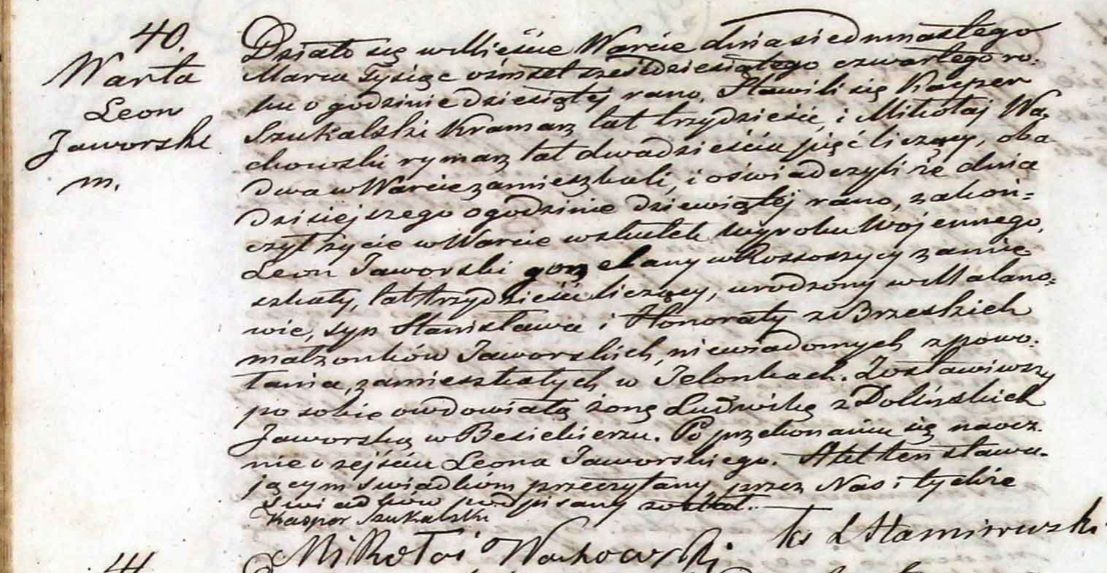 40.
Warta
Leon
Jaworski
m.
Działo się w Mieście Warcie dnia siedmnastego
Marca tysiąc ośmset sześćdziesiątego czwartego ro-
ku o godzinie dziesiątej rano. Stawili się Kacper
Szukalski Kramarz lat trzydzieści, i Mikołaj Wa-
chowski rymarz lat dwadzieścia pięć liczący, oba
dwa w Warcie zamieszkali, i oświadczyli że dnia
dzisiejszego o godzinie dziewiątej rano, zakoń-
czył życie w Warcie wskutek wyroku Wojennego,
Leon Jaworski gorzelany w Rossoszycy zamie
szkały, lat trzydzieści liczący, urodzony w Malano-
wie, syn Stanisława i Honoraty z Brzeskich
małżonków Jaworskich, niewiadomych z powo-
łania, zamieszkałych w Jelonkach. Zostawiwszy
po sobie owdowiałą żonę Ludwikę z Dolińskich
Jaworską w Besiekierzu. Po przekonaniu się naocz
nie o zejściu Leona Jaworskiego. Akt ten stawa-
jącym świadkom przeczytany przez Nas i tychże
świadków podpisany został.
Kasper Szukalski
Mikołai Wachowski ks
41